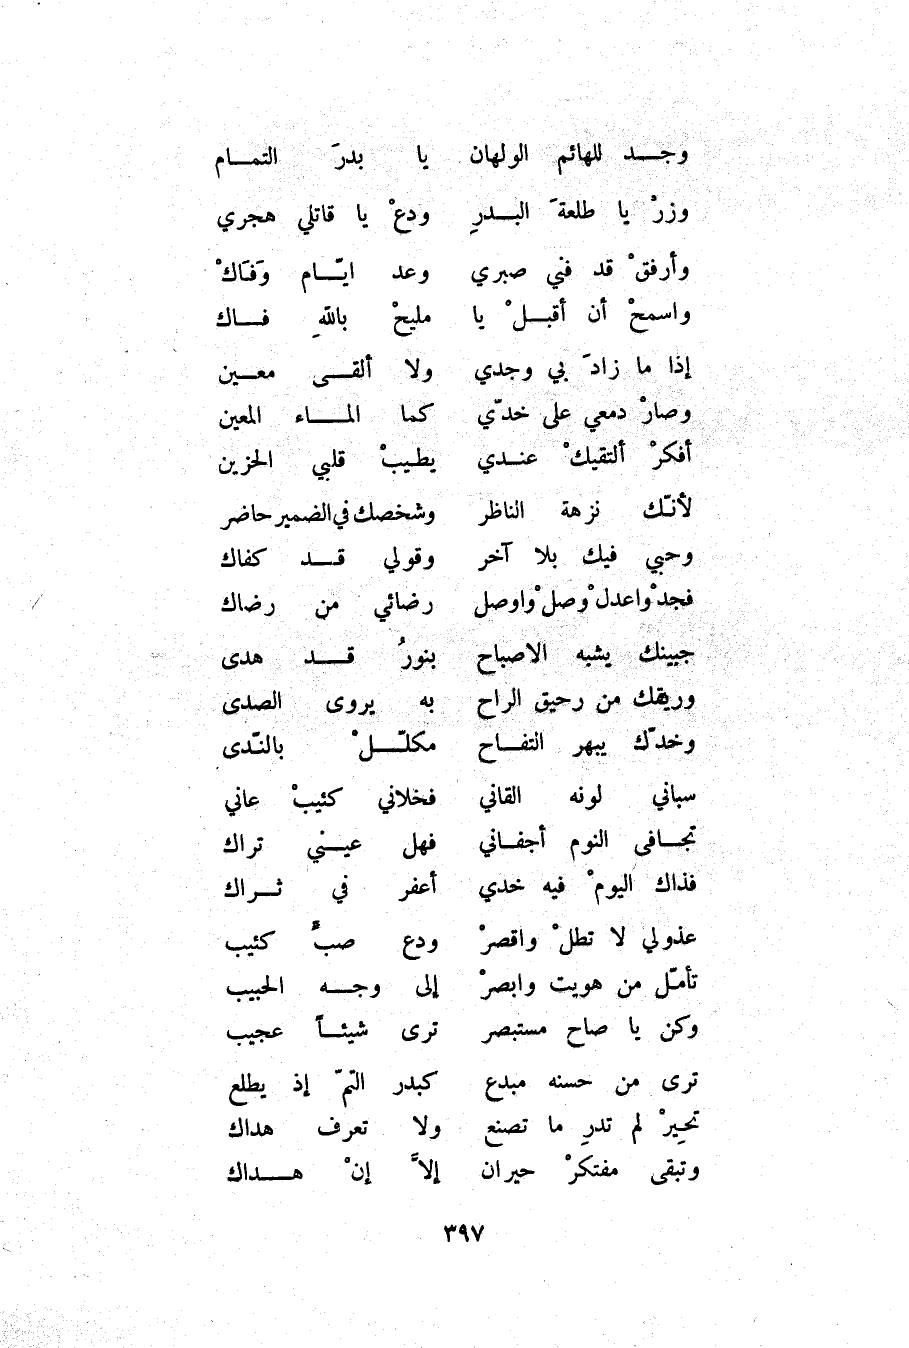 وجـــد للهائم الولهان يا بدرَ التمـــام
وزرْ يا طلعةَ البـــدرِ ودعْ يا قاتلي هجري
وأرفقْ قد فني صبري وعد ايـّـام وَفـَاكْ
واسمحْ أن أقبـــلْ يا مليحْ باللهِ فـــاك
إذا ما زادَ بي وجدي ولا ألقـــى معـــين
وصارْ دمعي على خدّي كما المـــاء المعين
أفكرْ ألتقيكْ عنـــدي يطيـبْ قلبي الحزين
لأنـّـك نزهة الناظر وشخصك في الضمير حاضر
وحبي فيك بلا آخر وقولي قـــد كفاك
فجدْ واعدلْ وصلْ واوصل رضائي من رضاك
جبينك يشبه الاصباح بنورُ قـــد هدى
وريقك من رحيق الراح به يروى الصدى
وخدّك يبهر التفـــاح مكلـّـلْ بالنـّـدى
سباني لونه القاني فخلاني كئيبْ عاني
تجـــافى النوم أجفـــاني فهل عيـــني تراك
فذاك اليومْ فيه خدي أعفر في ثـــراك
عذولي لا تطلْ واقصرْ ودع صبٌّ كئيب
تأمـّـل من هويت وابصرْ إلى وجـــه الحبيب
وكن يا صاح مستبصر ترى شيئـــاً عجيب
ترى من حسنه مبدع كبدر التّمّ إذ يطلع
تحيرْ لم تدرِ ما تصنع ولا تعرف هداك
وتبقى مفتكرْ حيران إلاَّ إنْ هـــداك
٣٩٧